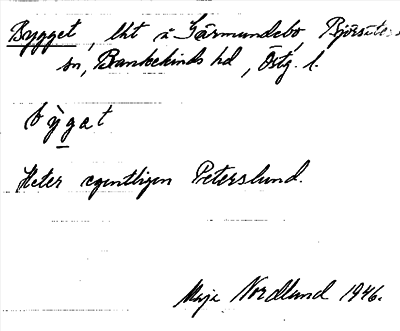 Bygget, lht i Gärmundebo, Björsäters
sn, Bankekinds hd, Östg. l.
bỳgat
Heter egentligen Peterslund.
Maja Nordlund 1946.